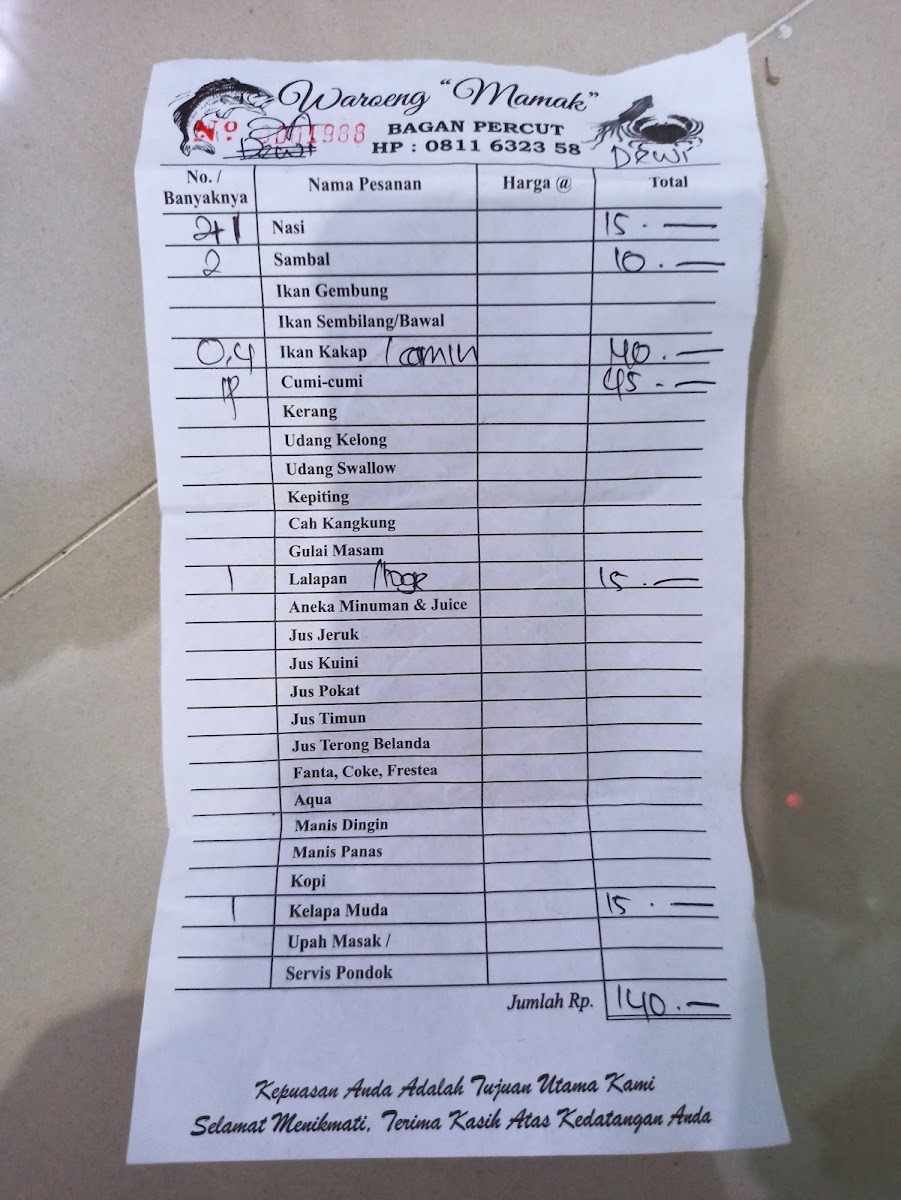 Waroeng "Mamak"
No. 001988 BAGAN PERCUT
HP : 0811 6323 58
Dewi Dewi
No. / Banyaknya Nama Pesanan Harga @ Total
2+1 Nasi 15.—
2 Sambal 10.—
Ikan Gembung
Ikan Sembilang/Bawal
0,4 Ikan Kakap 40.—
Cumi-cumi 45.—
Kerang
Udang Kelong
Udang Swallow
Kepiting
Cah Kangkung
Gulai Masam
1 Lalapan 15.—
Aneka Minuman & Juice
Jus Jeruk
Jus Kuini
Jus Pokat
Jus Timun
Jus Terong Belanda
Fanta, Coke, Frestea
Aqua
Manis Dingin
Manis Panas
Kopi
1 Kelapa Muda 15.—
Upah Masak /
Servis Pondok
Jumlah Rp. 140.—
Kepuasan Anda Adalah Tujuan Utama Kami
Selamat Menikmati, Terima Kasih Atas Kedatangan Anda